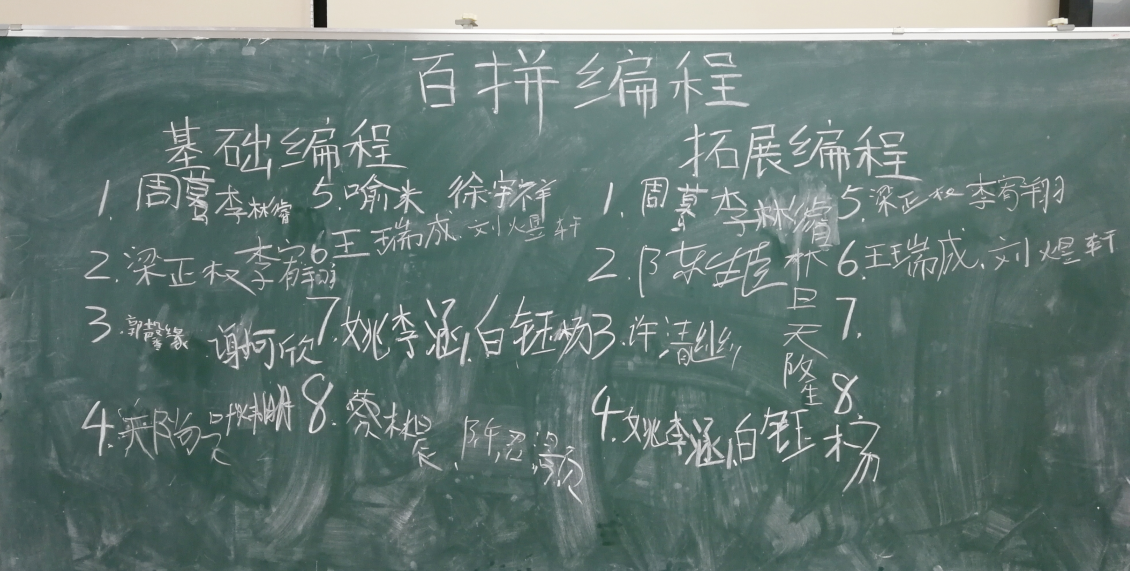 百拼编程
基础编程
1. 周蔓 李林睿
2. 梁正权 李宥翔
3. 郭馨缘 谢柯欣
4.
5. 喻米 徐宇祥
6 王瑞成 刘煜轩
7. 姚李涵, 白钰杨
8. 蔡林晨
拓展编程
1. 周蔓 李林睿
2. 林旦天隆
3. 许清
4. 姚李涵, 白钰杨
5. 梁正权 李宥翔
6. 王瑞成、刘煜轩
7.
8